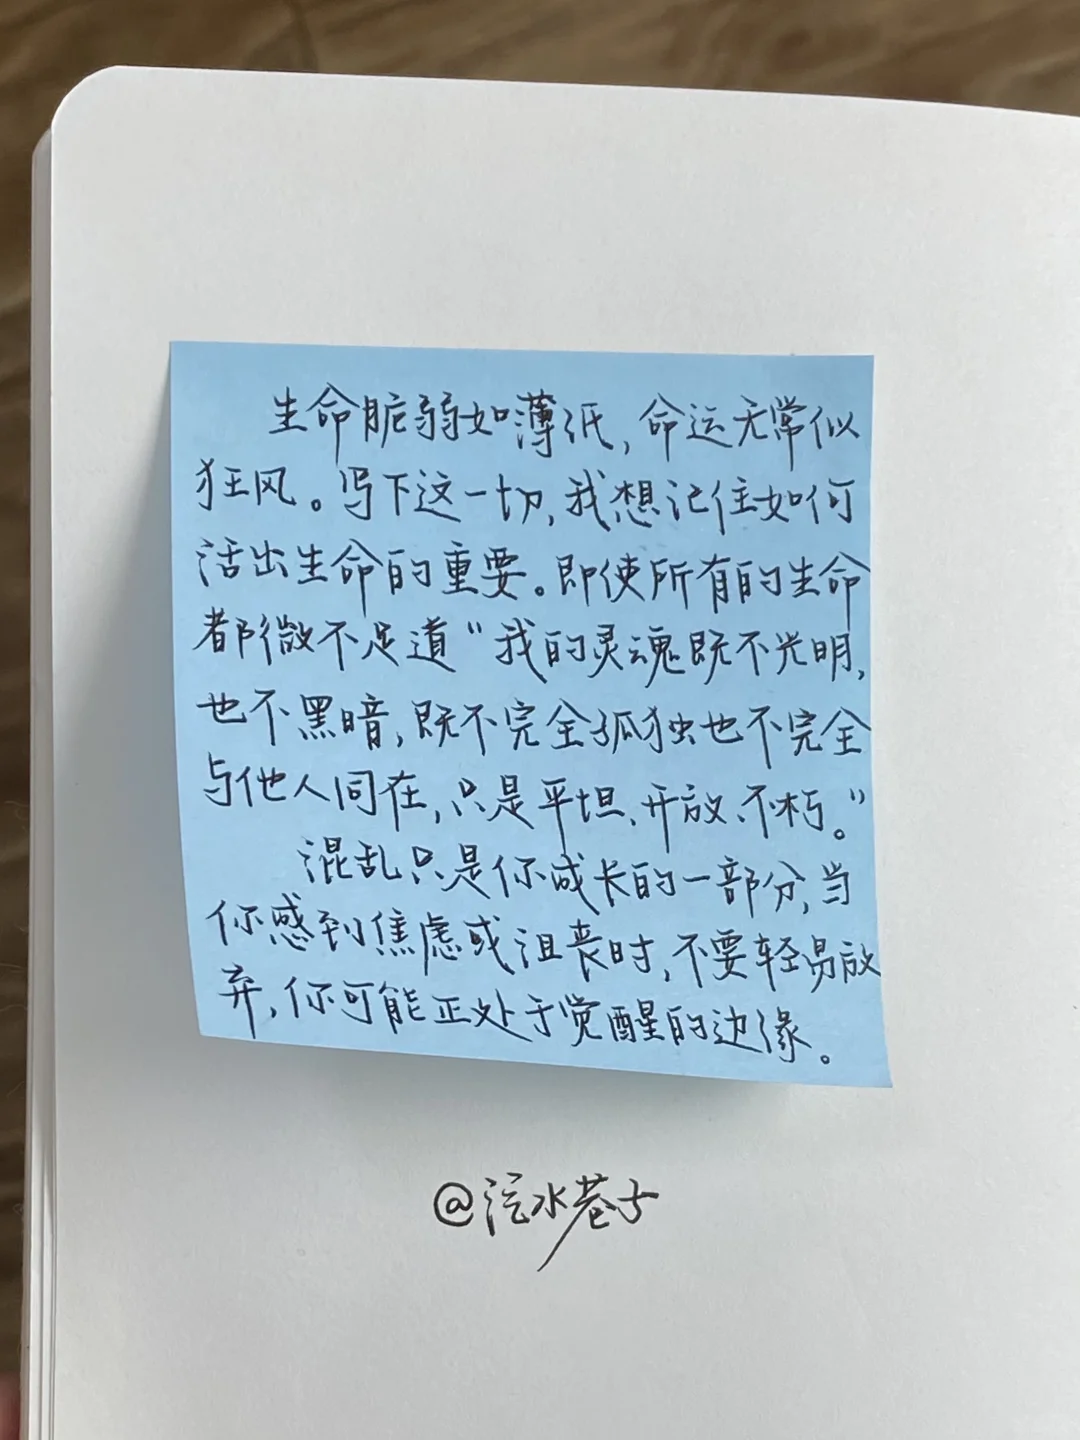 生命脆弱如薄纸,命运无常似
狂风。写下这一切,我想记住如何
活出生命的重要。即使所有的生命
都微不足道“我的灵魂既不光明,
也不黑暗,既不完全孤独也不完全
与他人同在,只是平坦、开放、不朽。”
混乱只是你成长的一部分,当
你感到焦虑或沮丧时,不要轻易放
弃,你可能正处于觉醒的边缘。
@汽水巷子